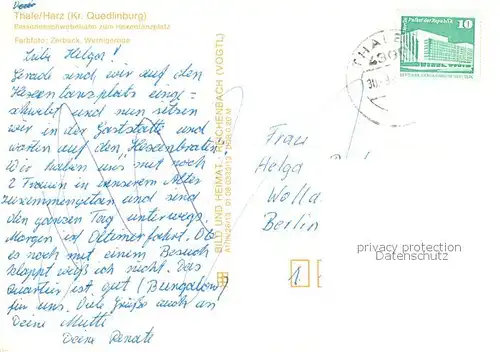 Thale/Harz (Kr. Quedlinburg)
Personenschwebebahn zum Hexentanzplatz
Farbfoto: Zerback, Wernigerode
Liebe Helga!
Gerade sind wir auf den
Hexentanzplatz einge-
schwebt und nun sitzen
wir in der Gaststätte und
warten auf den Hexenbraten!
Wir haben uns mit noch
2 Frauen in unserem Alter
zusammengetan und sind
den ganzen Tag unterwegs.
Morgen ist Oldtimerfahrt. Ob
es noch mit einem Besuch
klappt weiß ich nicht. Das
Quartier ist gut (Bungalow)
für uns. Viele Grüße auch an
Deine Mutti
Deine Renate
BILD UND HEIMAT REICHENBACH (VOGTL)
THALE
10
Palast der Republik
Frau
Helga
Wolla
Berlin
1
privacy protection